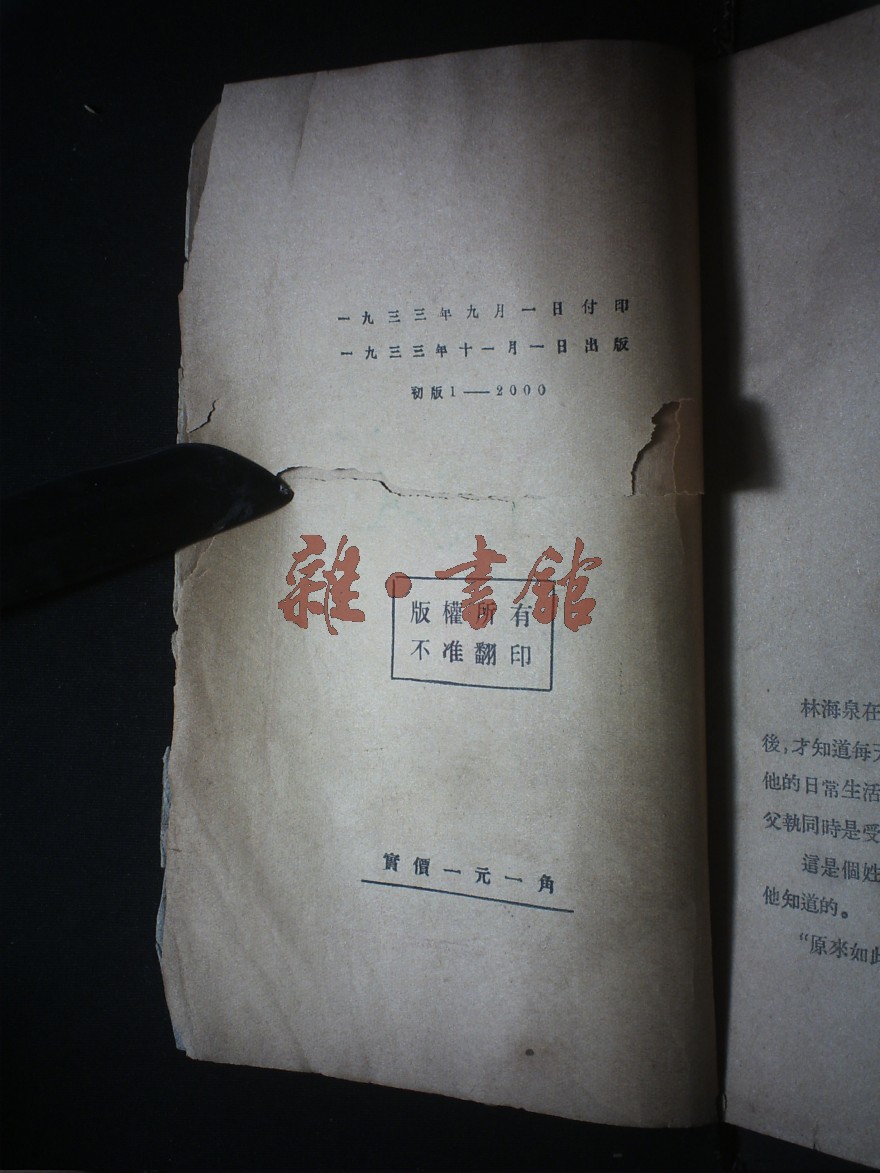 一九三三年九月一日付印
一九三三年十一月一日出版
初版1——2000
雜·書館
版權所有
不准翻印
實價一元一角
林海泉在
後，才知道每天
他的日常生活
父執同時是受
這是個姓
他知道的。
“原來如此